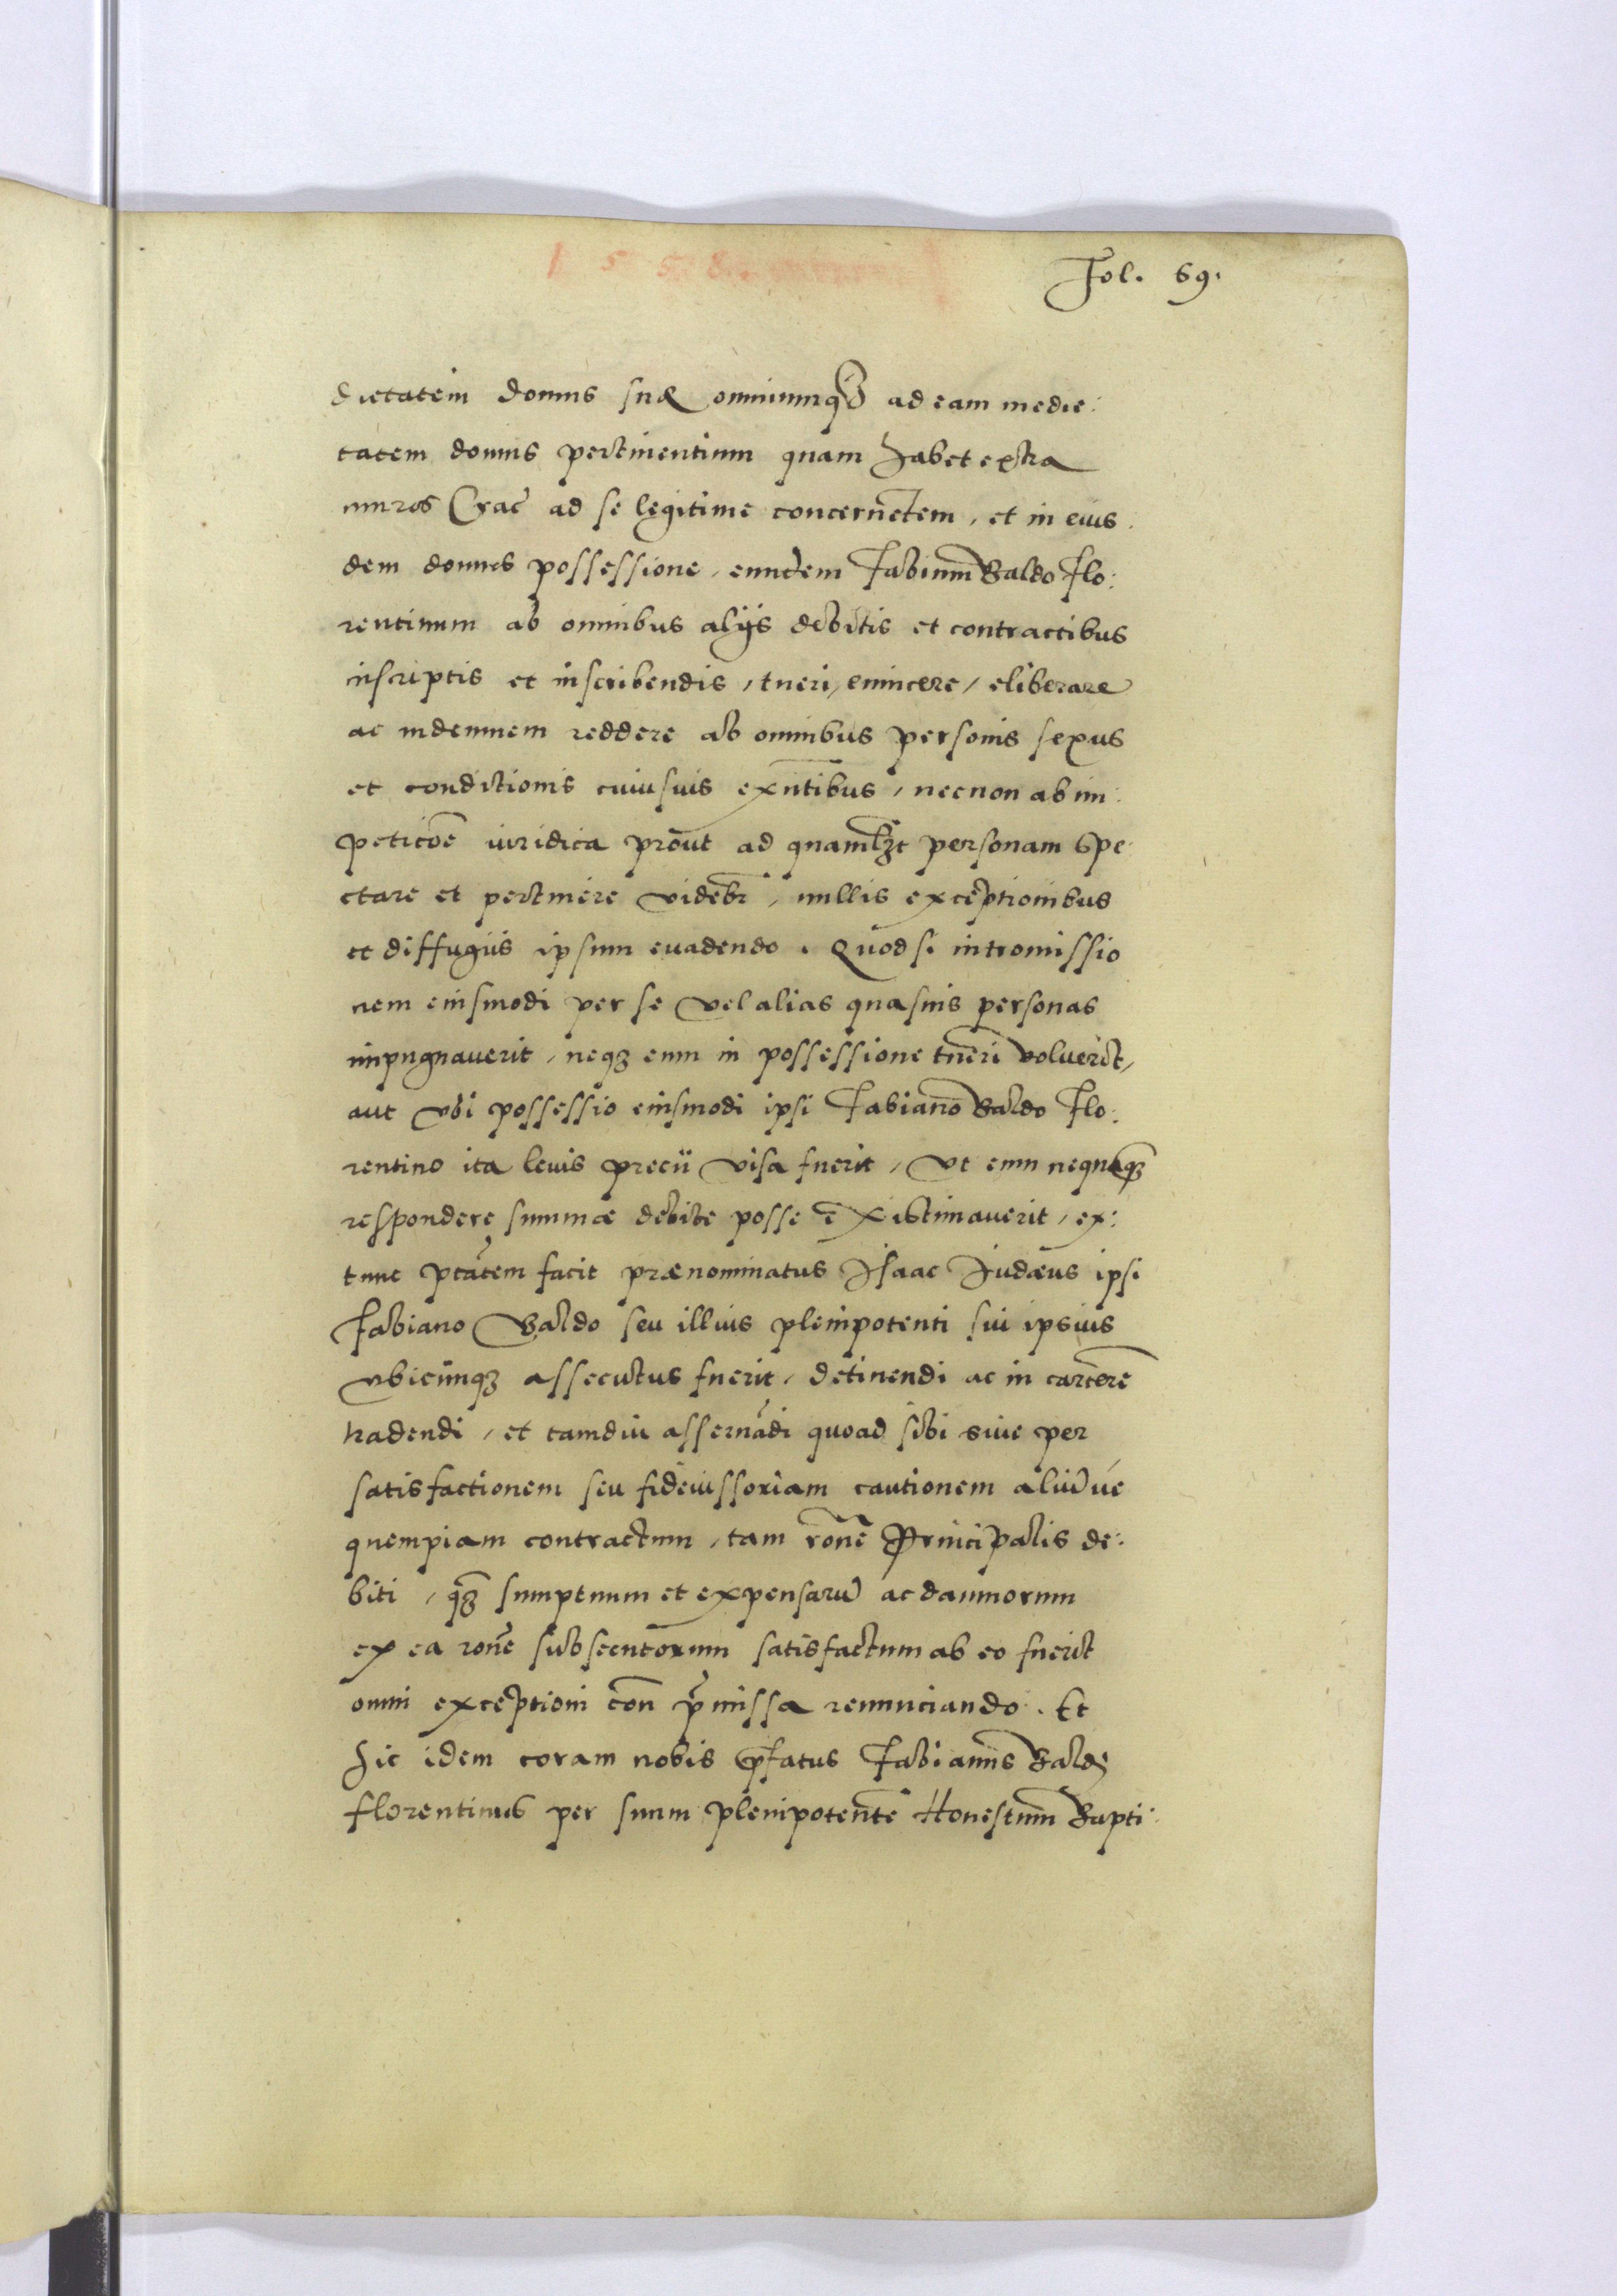 Fol. 69.
dietatem domus suæ omniumqȝ ad eam medie:
tatem domus pertinentium quam habet extra
muros Crac̃ ad se legitime concernẽtem, et in eius
dem domus possessione, eundem Fabianũ Baldo Flo:
rentinum ab omnibus alijs debitis et contractibus
inscriptis et inscribendis, tueri, euincere, eliberare
ac indemnem reddere ab omnibus personis sexus
et conditionis cuiusuis exñtibus, necnon ab im:
peticõe iuridica prout ad quamlȝt personam spe
ctare et pertinere videbr̃, nullis exceptionibus
et diffugiis ipsum euadendo. Quod si intromissio
nem eiusmodi per se vel alias quasuis personas
impugnauerit, neqȝ eum in possessione tueri voluerit,
aut vbi possessio eiusmodi ipsi Fabiano Baldo Flo:
rentino ita leuis precii visa fuerit, vt eum nequaqȝ
respondere summæ debite posse existimauerit, ex:
tunc ptãtem facit prænominatus Isaac Iudæus ipsi
Fabiano Baldo seu illius plenipotenti sui ipsius
vbicunqȝ assecutus fuerit, detinendi ac in carcerẽ
tradendi, et tamdiu asseruãdi quoad sibi siue per
satisfactionem seu fideiussoriam cautionem aliudue
quempiam contractum, tam rõne Principalis de:
biti, qȝ sumptuum et expensarũ ac damnorum
ex ea rõne subsecutorum satisfactum ab eo fuerit
omni exceptioni con̄ p̃missa renunciando. Et
hic idem coram nobis p̃fatus Fabianus Baldo
florentinus per suum plenipotentẽ Honestum Bapti: